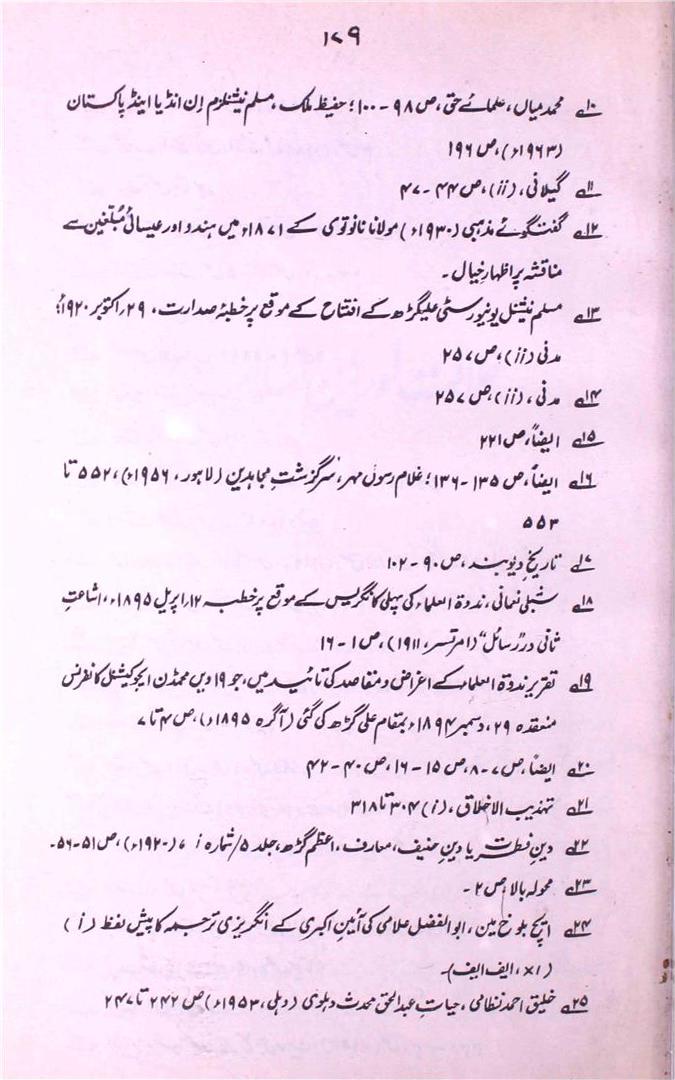 ۱۷۹
۱۰؎ محمد میاں، علمائے حق، ص ۹۸ - ۱۰۰؛ حفیظ ملک، مسلم نیشنلزم اِن انڈیا اینڈ پاکستان
(۱۹۶۳ء)، ص ۱۹۶
۱۱؎ گیلانی، (ii)، ص ۴۴ - ۴۷
۱۲؎ گفتگوئے مذہبی (۱۹۳۰ء) مولانا نانوتوی کے ۱۸۷۱ء میں ہندو اور عیسائی مُبلّغین سے
مناقشہ پر اظہارِ خیال۔
۱۳؎ مسلم نیشنل یونیورسٹی علیگڑھ کے افتتاح کے موقع پر خطبۂ صدارت، ۲۹؍اکتوبر ۱۹۲۰ء؛
مدنی (ii)، ص ۲۵۷
۱۴؎ مدنی، (ii)، ص ۲۵۷
۱۵؎ ایضاً، ص ۲۲۱
۱۶؎ ایضاً، ص ۱۳۵ - ۱۳۶؛ غلام رسول مہر، سرگزشتِ مجاہدین (لاہور، ۱۹۵۶ء)، ۵۵۲ تا
۵۵۳
۱۷؎ تاریخِ دیوبند، ص ۹۰ - ۱۰۲
۱۸؎ شبلی نعمانی، ندوۃ العلماء کی پہلی کانگریس کے موقع پر خطبہ ۱۲؍اپریل ۱۸۹۵ء، اشاعتِ
ثانی در "رسائل" (امرتسر، ۱۹۱۱)، ص ۱ - ۱۶
۱۹؎ تقریر ندوۃ العلماء کے اغراض و مقاصد کی تائید میں، جو ۱۹ ویں محمڈن ایجوکیشنل کانفرنس
منعقدہ ۲۹، دسمبر ۱۸۹۴ء بمقام علی گڑھ کی گئی (آگرہ ۱۸۹۵ء)، ص ۴ تا ۷
۲۰؎ ایضاً، ص ۷ - ۸، ص ۱۵ - ۱۶، ص ۴۰ - ۴۲
۲۱؎ تہذیب الاخلاق، (i) ۳۰۴ تا ۳۱۸
۲۲؎ دینِ فطرت یا دینِ حنیف، معارف، اعظم گڑھ، جلد ۵/شمارہ i ۷ (۱۹۲۰ء)، ص ۵۱-۵۶۔
۲۳؎ محولہ بالا، ص ۲۔
۲۴؎ ایچ بلوخ مین، ابوالفضل علامی کی آئینِ اکبری کے انگریزی ترجمہ کا پیش لفظ (i)
(۱×، ایف ایف)۔
۲۵؎ خلیق احمد نظامی، حیاتِ عبدالحق محدث دہلوی (دہلی، ۱۹۵۳ء) ص ۲۴۲ تا ۲۴۷